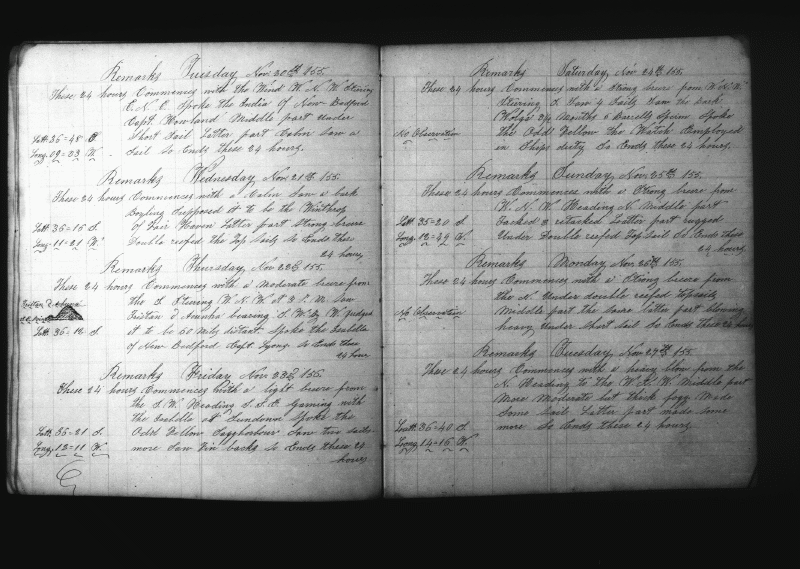 Remarks Tuesday Nov 20th 155.
These 24 hours Commences with the Wind W. N. W. Stering
E. N. E. Spoke the India of New Bedford
Capt. Howland Middle part Under
Latt. 36=48 S Short Sail Latter part Calm Saw a
Long. 09=23 W. Sail So Ends these 24 hours.
Remarks Wednesday, Nov 21th 155.
These 24 hours Commences with a Calm Saw a bark
Boyling Supposed it to be the Winthrop
Latt. 36=16 S of Fair Haven Latter part Strong breese
Long. 11=21 W. Double reefed the Top Sails So Ends these
24 hours,
Remarks Thursday, Nov 22d 155.
These 24 hours Commences with a moderate breese from
the S Stering W. N. W. At 3 P. M. Saw
Tristan D Acunha bearing S. W. By W judged
Latt. 36=12 S. it to be 60 Mils distant. Spoke the Isabella
of New Bedford Capt. Lyons So Ends these
24 hour
Remarks Friday, Nov 23d 155.
These 24 hours Commences with a light breese from
the S.W. Heading S.S.E. Gaming with
the Isabella At Sundown Spoke the
Latt. 35=21 S. Odd Fellow Sagharbour Saw two Sails
Long. 12=11 W. more Saw Fin backs So Ends these 24
hours
Remarks Saturday, Nov 24th 155.
These 24 hours Commences with a Strong breese from W.N.W.
Stering S Saw 4 Sails Saw the bark
Months Barells Sperm Spoke
No Observation the Odd Fellow the Watch Employed
in Ships duty So Ends these 24 hours.
Remarks Sunday, Nov 25th 155.
These 24 hours Commences with a Strong breese from
W. N. W. Heading N. Middle part
Latt. 35=20 S Tacked & retacked Latter part rugged
Long. 12=49 W. Under Double reefed Top Sail So Ends these
24 hours
Remarks Monday, Nov 26th 155.
These 24 hours Commences with a Strong breese from
the N. Under double reefed topsails
No Observation Middle part the Same latter part blowing
heavy Under Short Sail So Ends these 24 hours
Remarks Tuesday, Nov 27th 155.
These 24 hours Commences with a heavy blow from the
N. Heading to the W. Middle part
More Moderate but thick fogg Made
Latt. 36=40 S. Some Sail Latter part made Some
Long. 14=16 W. more So Ends these 24 hours